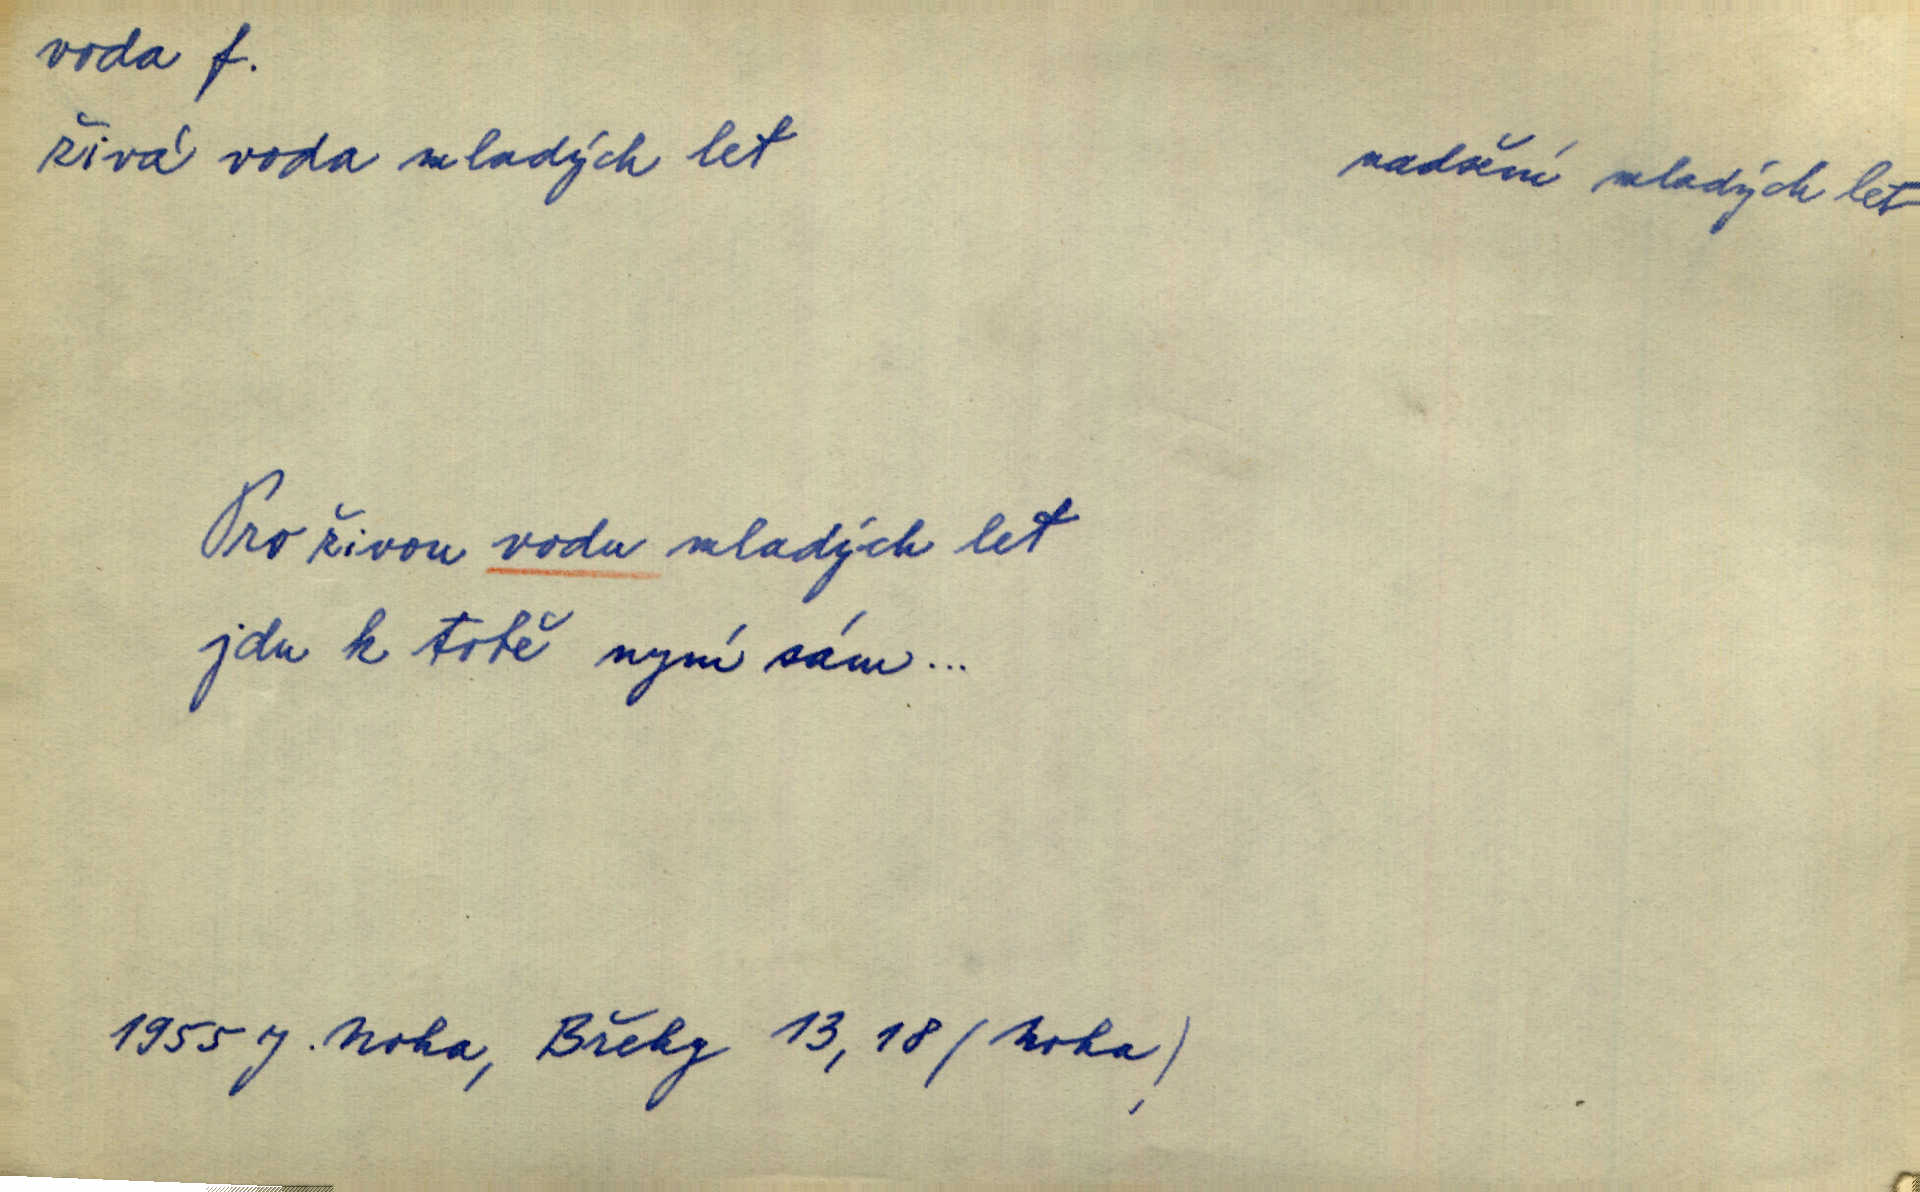 voda f.
živá voda mladých let
nadšení mladých let
Pro živou vodu mladých let
jdu k tobě nyní sám...
1955 J. Noha, Břehy 13, 18 (Noha)